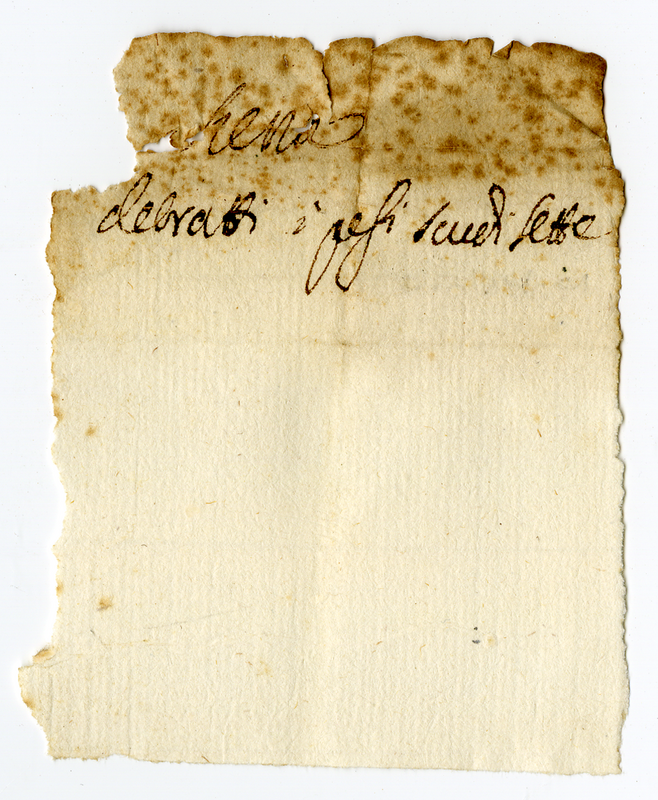 debratti i pesi scudi sette